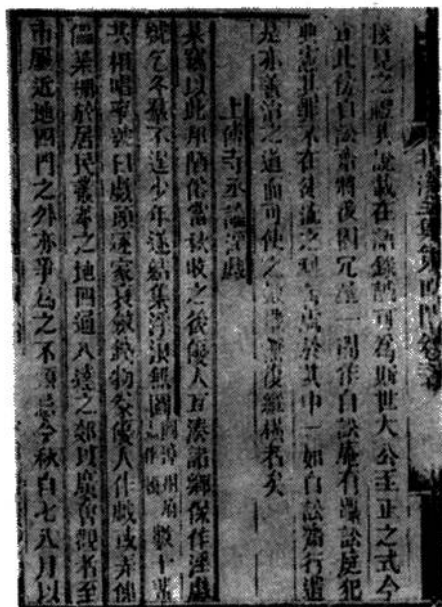 北溪全集第四門卷
後見之禮其說載在語錄最可為斯世大公至正之式今
宜比倣自訟齋將後園冗屋一間作自訟庵有譁訟應犯
典憲其罪不在徒流之列者處於其中一如自訟齋行遣
是亦善治之道而可使之無復縱橫者矣
上傅寺丞論淫戲
某竊以此邦陋俗當秋收之後優人互湊諸鄉保作淫戲
號乞冬羣不逞少年遂結集浮浪無圖數十輩
共相唱率號曰戲頭逐家裒斂錢物豢優人作戲或弄傀
儡築棚於居民叢萃之地四通八達之郊以廣會觀者至
市廛近地四門之外亦爭為之不顧忌今秋自七八月以